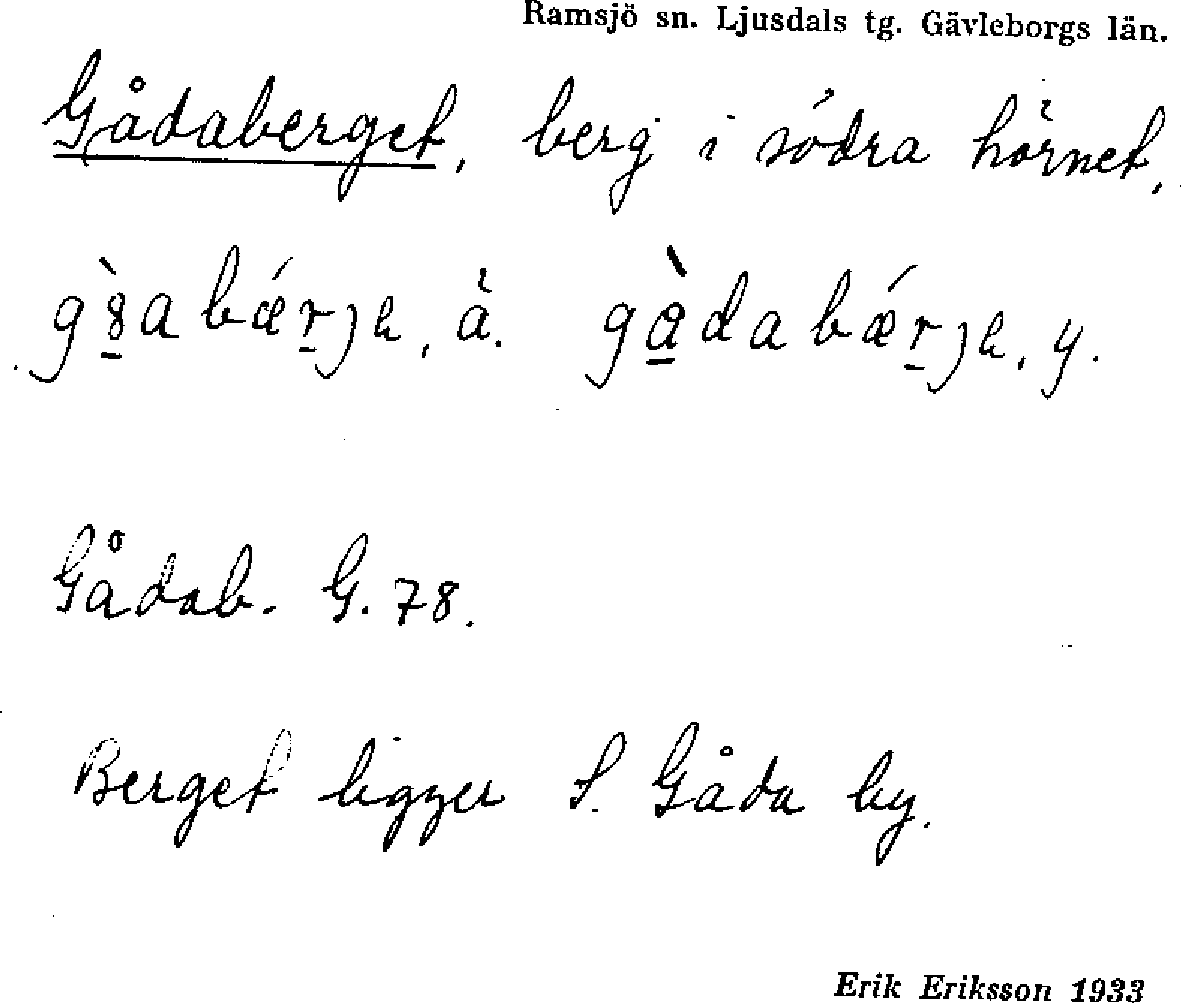 Ramsjö sn. Ljusdals tg. Gävleborgs län.
Gådaberget, berg i södra hörnet,
bǽr̠ȷe, ä. gàdabǽr̠ȷe, y.
Gådab. G. 78.
Berget ligger S. Gåda by.
Erik Eriksson 1933